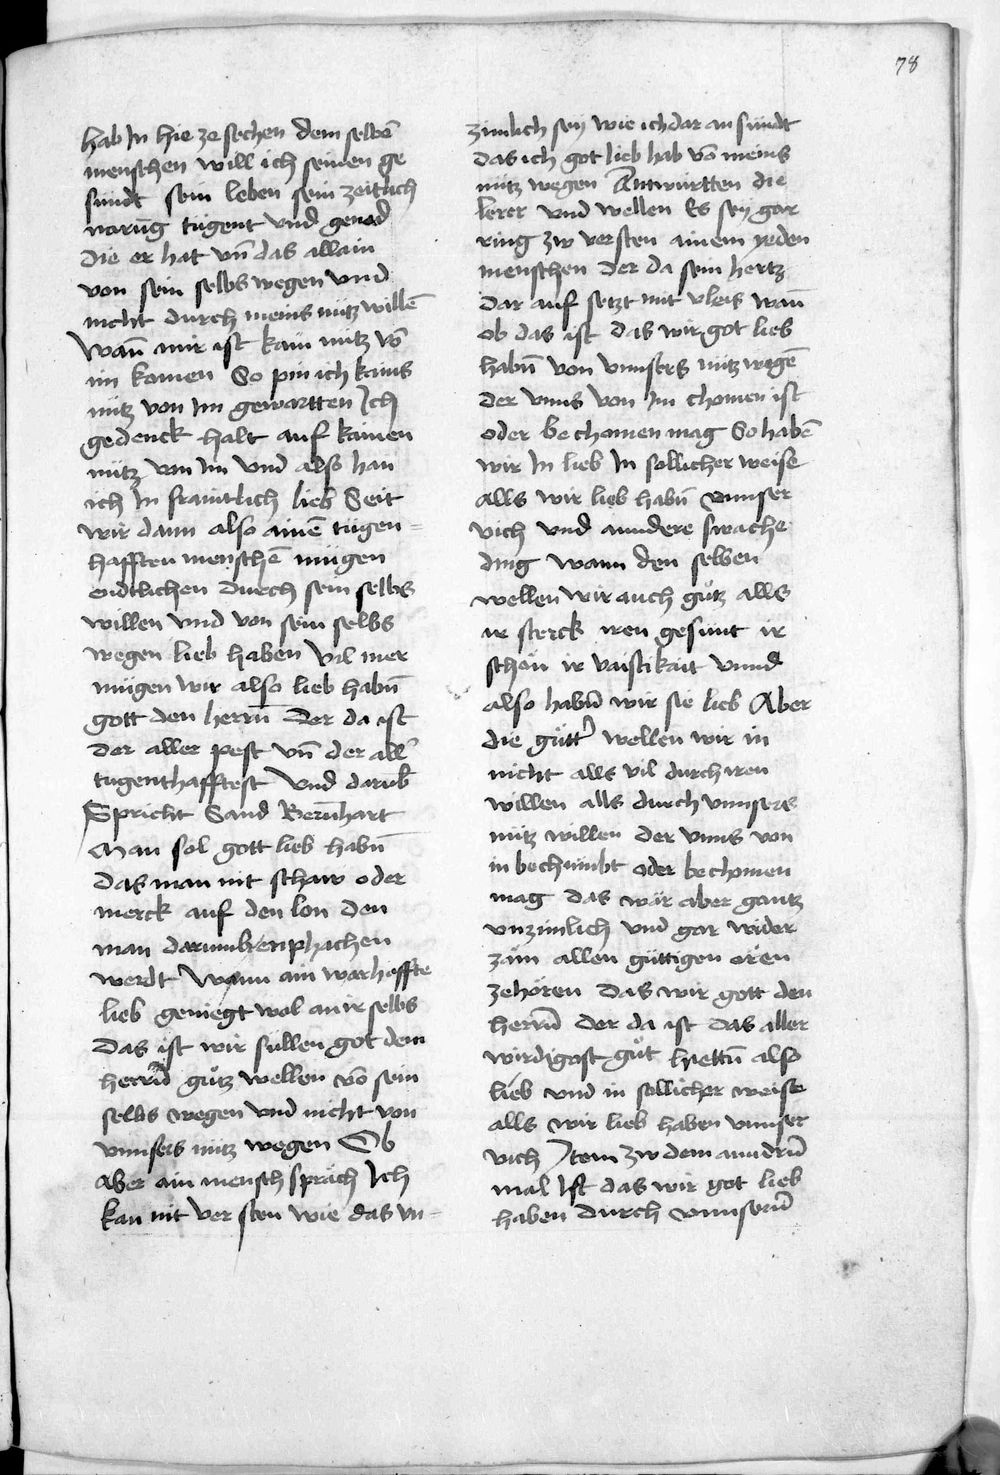 78
hab In hie ze sechen dem selbē
menschen will ich seinen ge
sundt sein leben sein zeitlich
narūg tugent vnd genad
die er hat vn̄ das allain
von sein selbs wegen vnd
nicht durch meins nutz willē
Wan̄ mir ist kain nutz vō
im komen So pin ich kains
nutz von Im gewartten Ich
gedenck halt auf kainen
nutz von Im vnd also han
ich In fraintlich lieb Seit
wir dann also ainē tugen=
hafften menschē mügen
ordtlichen durch sein selbs
willen vnd von sein selbs
wegen lieb haben vil mer
mügen wir also lieb habn̄
gott den herrn̄ der da ist
der aller pest vn̄ der all̄
tugenthafftest Vnd darūb
Spricht Sand Bern̄hart
Man sol gott lieb habn̄
das man nit schaw oder
merck auf den lon den
man darumb enphachen
werdt Wann ain warhaffte
lieb geniegt wol an ir selbs
das ist wir süllen got dem
herrn̄ gůtz wellen vō sein
selbs wegen vnd nicht von
vnnsers nutz wegen Ob
aber ain mensch spräch Ich
kan nit ver sten wie das vn=
zimlich sey wie ich dar an sündt
das ich got lieb hab vō meins
nütz wegen Antwürtten die
lerer vnd wellen Es sey gar
ring zw versten ainem yeden
menschen der da sein hertz
dar auf setzt mit vleis wan̄
ob das ist das wir got lieb
habn̄ von vnnsers nutz wegē
der vnns von Im chomen ist
oder be chomen mag So habē
wir In lieb In sollicher weise
alls wir lieb habn̄ vnnser
vich vnd anndere swache
ding wann den selben
wellen wir auch gůtz alls
ir sterck iren gesunt ir
schön ir vaistikait vnnd
also habn̄ wir sie lieb Aber
die gütt̄ wellen wir in
nicht alls vil durch iren
willen alls durch vnnsers
nutz willen der vnns von
in bechumbt oder bechomen
mag das wär aber gantz
vnzimlich vnd gar wider
zäm allen güttigen oren
zehören das wir gott den
herrn̄ der da ist das aller
wirdigost gůt hiettn̄ also
lieb vnd in sollicher weise
alls wir lieb haben vnnser
vich Item zw dem anndrn̄
mal Ist das wir got lieb
haben durch vnnsern̄